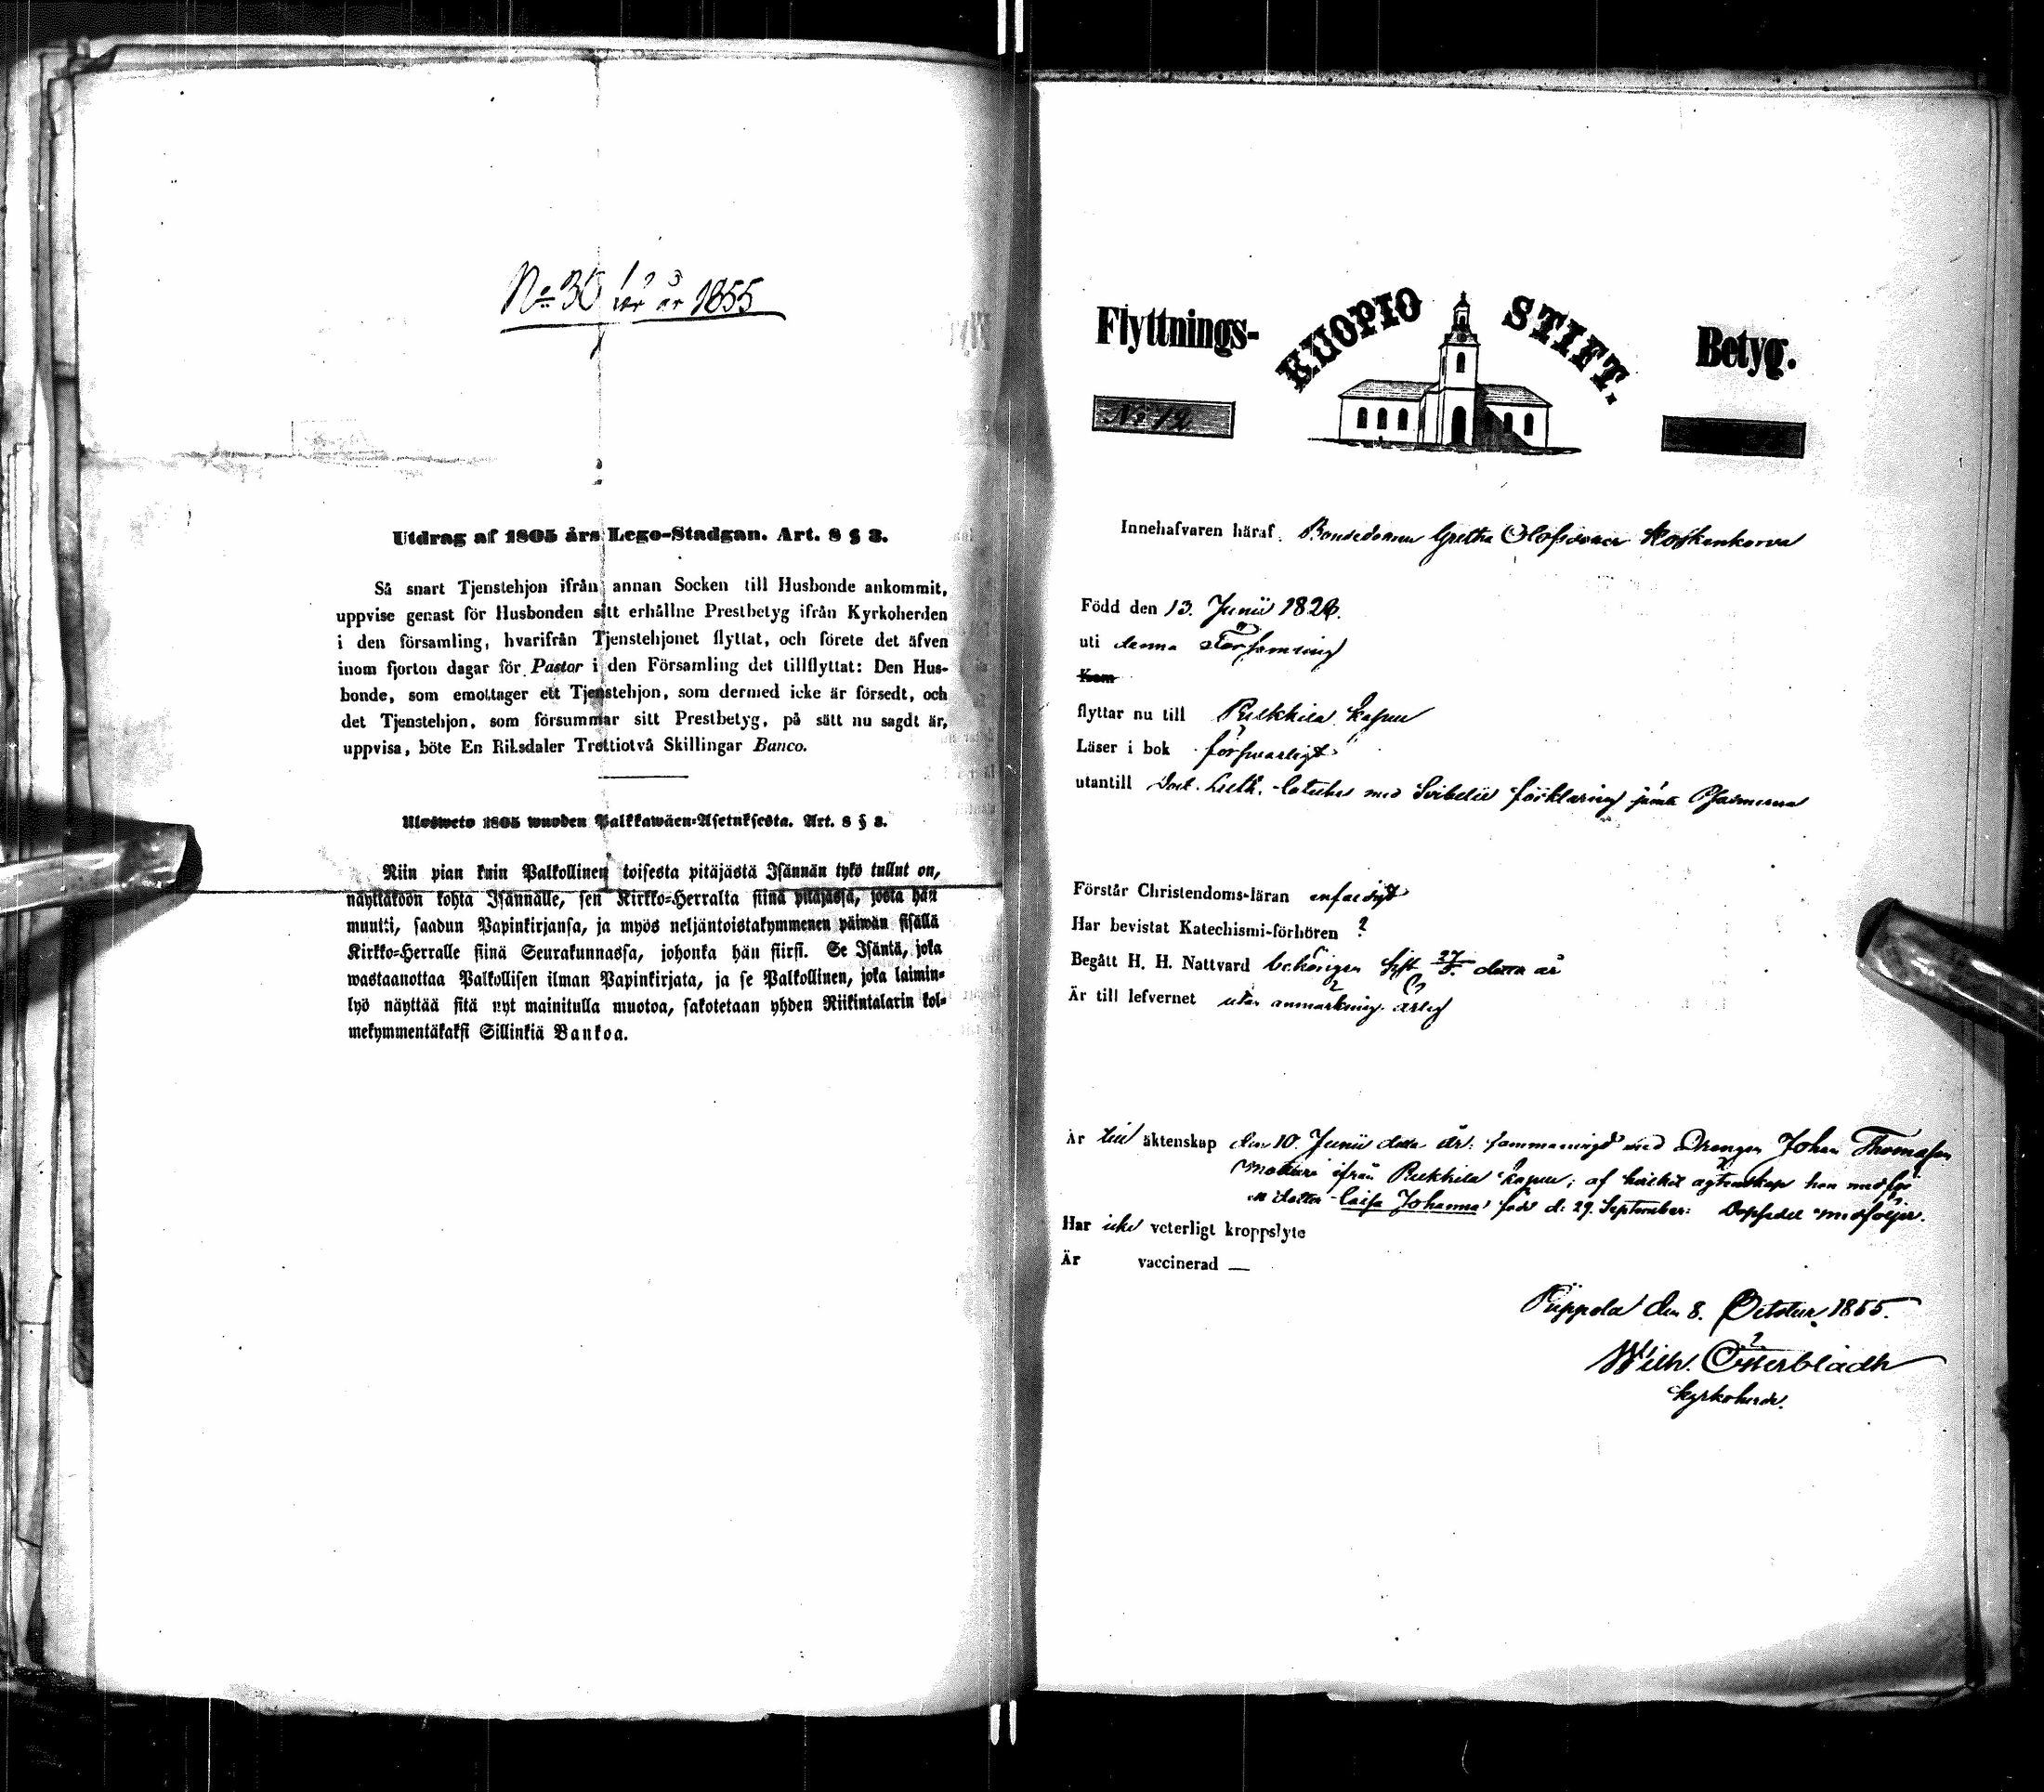 No 30 1855
Utdrag af 1805 års Lego-Stadgan. Art. 8 § 3.
Så snart Tjenstehjon ifrån annan Socken till Husbonde ankommit,
uppvise genast för Husbonden sitt erhållne Prestbetyg ifrån Kyrkoherden
i den församling, hvarifrån Tjenstehjonet flyttat, och förete det äfven
inom fjorton dagar för Pastor i den Församling det tillflyttat: Den Hus-
bonde, som emottager ett Tjenstehjon, som dermed icke är försedt, och
det Tjenstehjon, som försummar sitt Prestbetyg, på sätt nu sagdt är,
uppvisa, böte En Riksdaler Trettiotvå Skillingar Banco.
Ulosweto 1805 wuoden Palkkawäen-Asetuksesta. Art. 8 § 3.
Niin pian kuin Palkollinen toisesta pitäjästä Isännän tykö tullut on,
näyttäköön kohta Isännälle, sen Kirkko-Herralta siinä pitäjässä, josta hän
muutti, saadun Papinkirjansa, ja myös neljäntoistakymmenen päiwän sisällä
Kirkko-Herralle siinä Seurakunnassa, johonka hän siirsi. Se Isäntä, joka
wastaanottaa Palkollisen ilman Papinkirjata, ja se Palkollinen, joka laimin-
lyö näyttää sitä nyt mainitulla muotoa, sakotetaan yhden Riikintalarin kol-
mekymmentäkaksi Sillinkiä Bankoa.
Flyttnings- KUOPIO STIFT. Betyg.
No 72
Innehafvaren häraf Bondedottren Gretha Olofsdotter Koskenkorva
Född den 13. Junii 1826.
uti denna Församling
Kom
flyttar nu till Pulkkila kapell
Läser i bok försvarligt
utantill Doct. Luth. Cateches med Svebelii förklaring jemte Psalmerna
Förstår Christendoms-läran enfaldigt
Har bevistat Katechismi-förhören
Begått H. H. Nattvard behörigen sist 27/5 detta år
Är till lefvernet utan anmärkning ärlig
Är till äktenskap den 10. Junii detta år sammanvigd med Drengen Johan Thomasson
ifrån Pulkkila kapell; af hvilket ägtenskap hon medför
en dotter Caisa Johanna född d. 29. September: Opfödd medföljer.
Har icke veterligt kroppslyte
Är vaccinerad —
Pippola den 8. October 1855.
Wilh. Österbladh
Kyrkoherde.